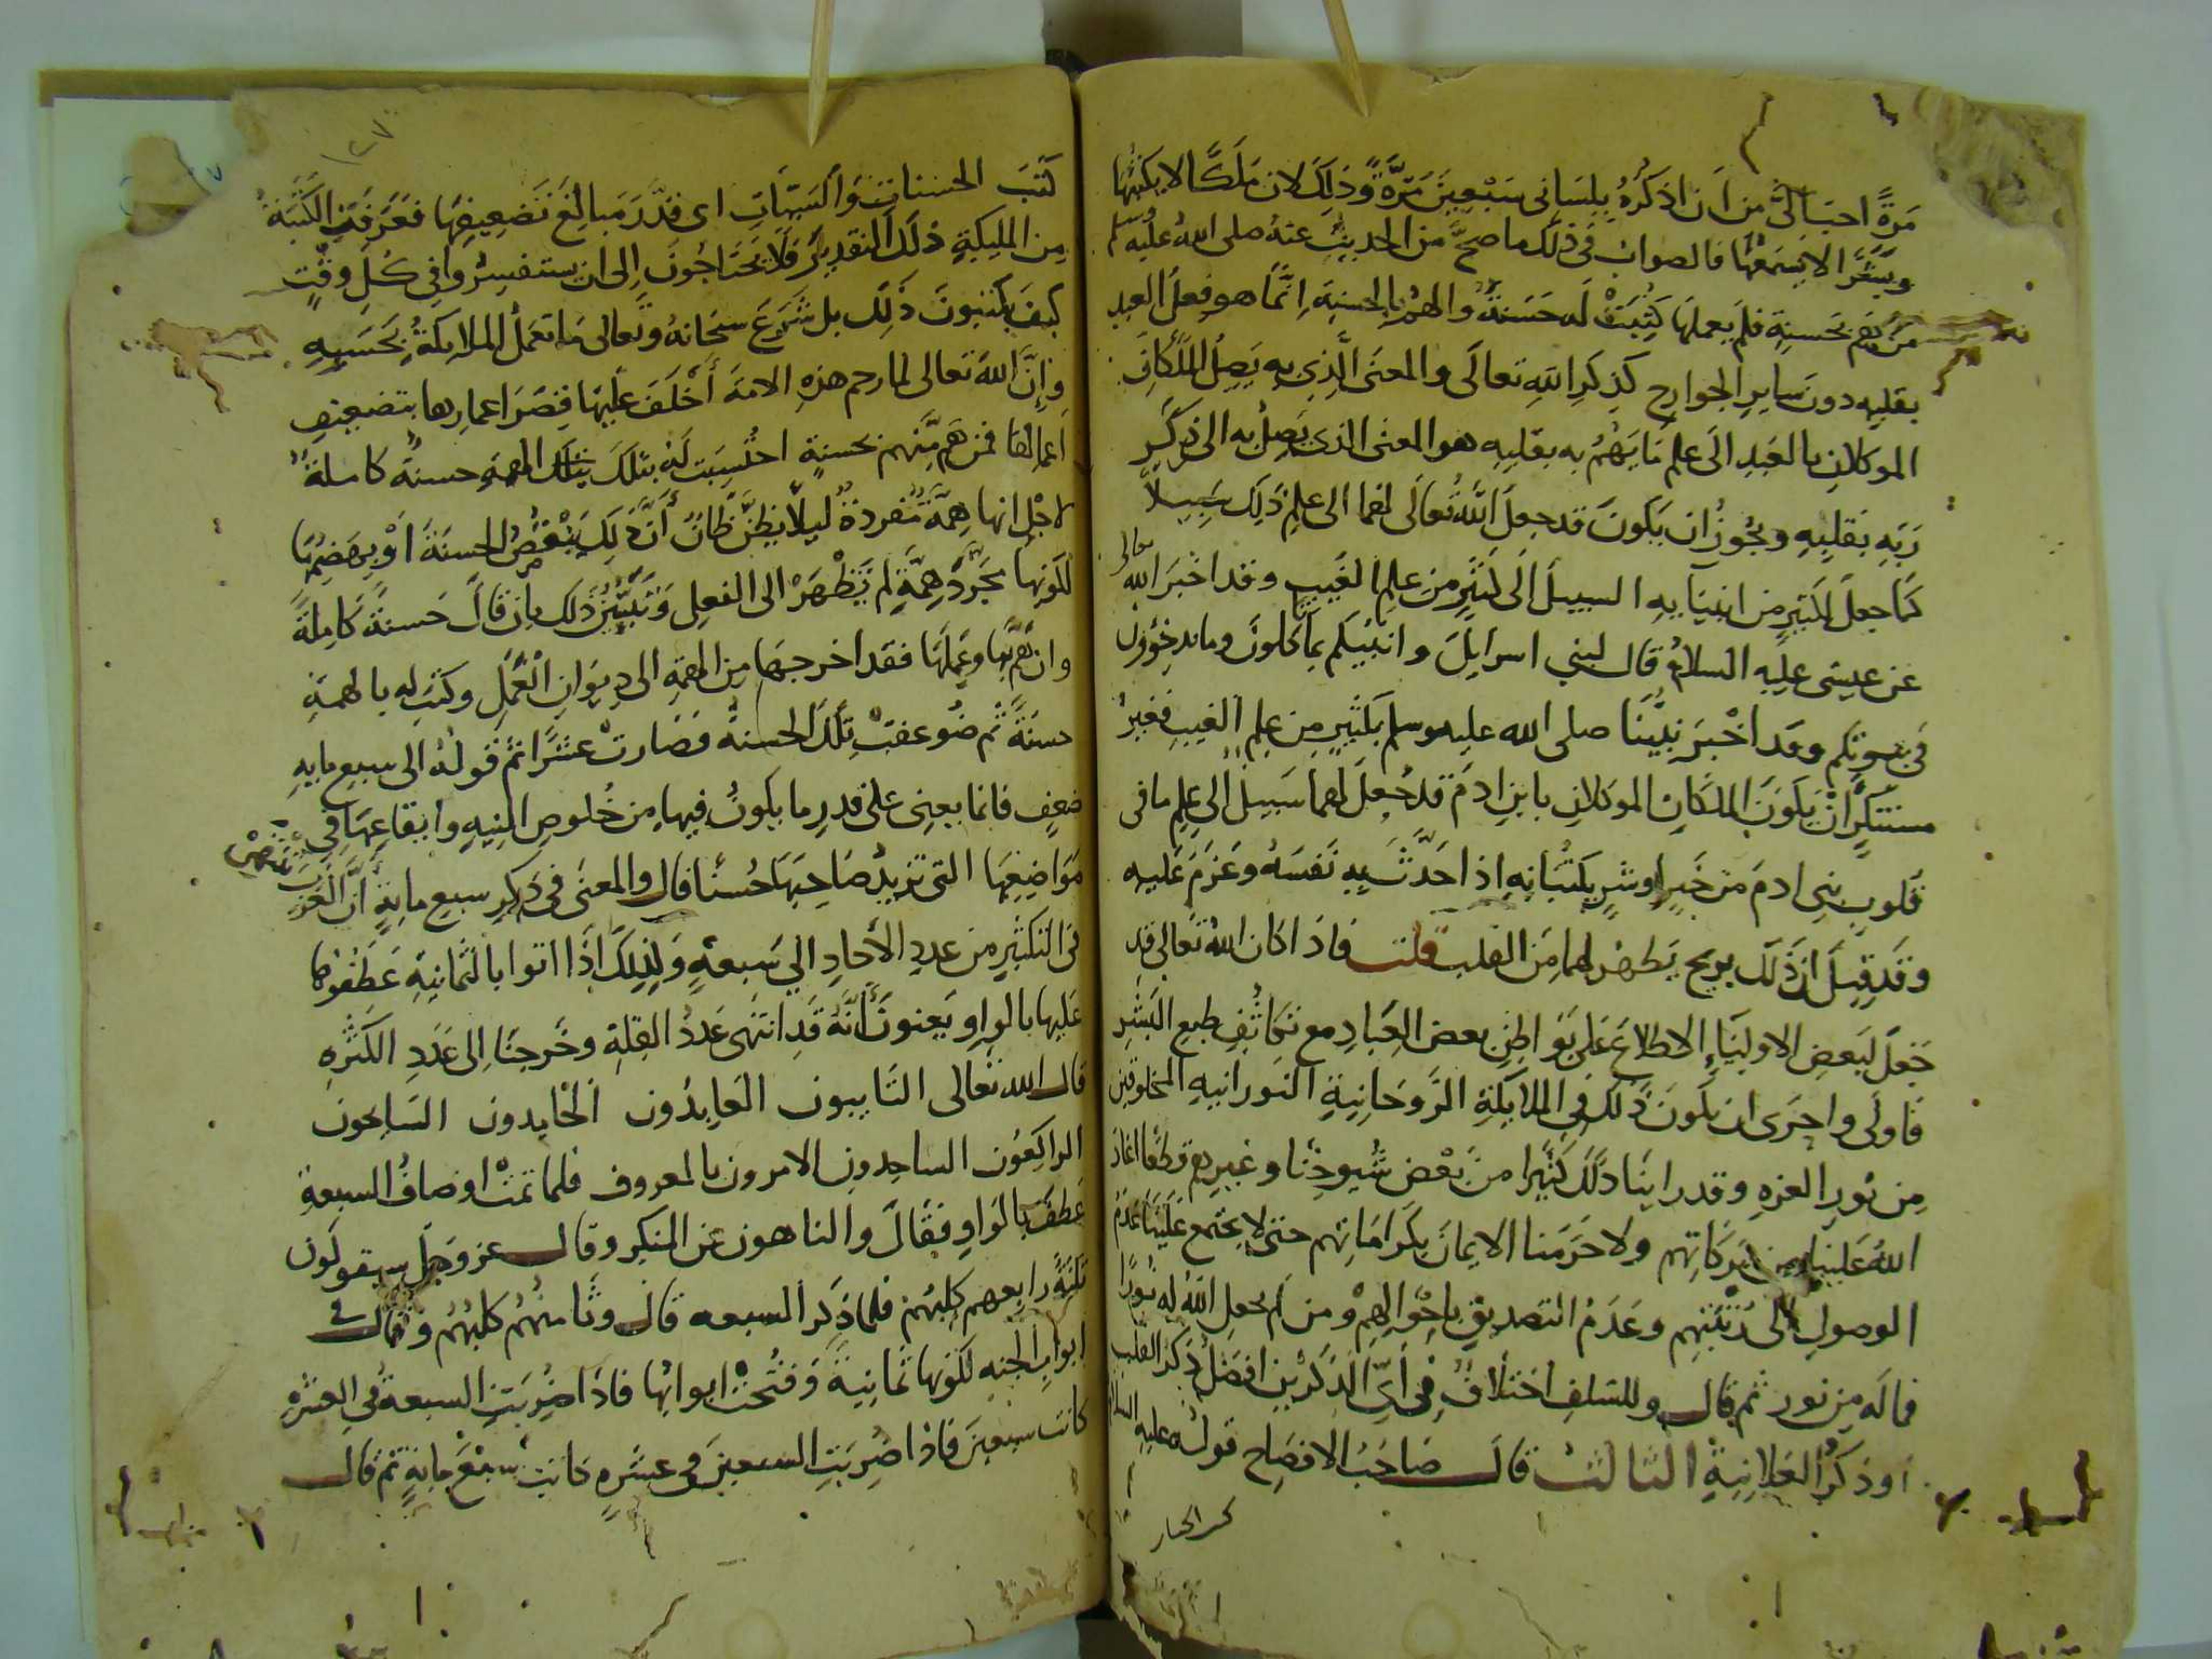 مَرةً احبَّ الىَّ من اَن اذكرُهُ بِلِسَانى سَبْعِينَ مَرَّةً وذلِكَ لان مَلَكًا لا يكتبُها
وبَشَرًا لا يَسمَعُها فالصوابُ فى ذلِكَ ماصحَّ من الحديثِ عنهُ صلى اللهُ عليهِ وسلم
مَن هَمَّ بحَسنةٍ فلم يعملهَا كُتِبَتْ له حَسَنةً والهمُّ بالحسنةِ اِنَّمَا هو فِعلُ العبدِ
بقلبِهِ دون سايرِ الجوارحِ كذِكرِ اللهِ تعالَى والمعنَى الَّذِى بهِ يَصِلُ المَلَكانِ
الموكلانِ بالعَبدِ الَى علمِ مَا يَهُمُّ به بقلبِهِ هو المعنى الذى يَصِلُ به الى ذِكرِ
رَبِّهِ بقلبِهِ ويجُوزُ ان يكونَ قد جعلَ اللهُ تعالَى لهما الى علمِ ذلِكَ سَبِيلاً
كما جعلَ لكثيرٍ من انبيَايِهِ السبيلَ الَى كثيرٍ من علمِ الغَيبِ وقد اخبَرَ الله تعالى
عن عيسَى عليه السلامُ قال لبنى اسرايلَ وانبيكم بما تاكلونَ وما تدخرون
فى بيوتكم وقد اخْبَرَ نبيُّنَا صلى الله عليه وسلم بكثيرٍ مِن علمِ الغيبِ فغيرُ
مستنكرٍ انْ يكونَ الملكانِ الموكلانِ بابنِ ادمَ قد جُعِلَ لهما سَبيلٌ الى علمِ ما فى
قلوبِ بنِى ادمَ من خَيرٍ او شرٍ يكتبَانِهِ اذا حَدَّثَ بهِ نَفسَهُ وعَزمَ عَليهِ
وقَد قيلَ ان ذلك بريحٍ يَظهرُ لهما مِنَ القلبِ قلتُ فاذا كان اللهُ تعالى قد
جَعلَ لبَعضِ الاوليَاءِ الاطلاعَ على بَواطِنِ بعضِ العِبَادِ مع تكَاثُفِ طبعِ البَشَرِ
فَاولَى واحرَى ان يكونَ ذلك فى الملايكةِ الرَّوحَانِيَةِ النورانيهِ المخلوقين
مِن نُورِ العزهِ وقد راينَا ذلكَ كثيرا من بَعْضِ شُيوخِنا وغيرِهم قطعًا اعاد
اللهُ عَلينَا من بَرَكاتِهم ولا حَرَمنا الايمانَ بكَرامَاتِهم حتى لا يجتمع علينَا عَدَمُ
الوصولِ الى رُتْبَتِهِم وعَدَمُ التصديقِ باحْوالِهِمْ ومن لم يجعل اللهُ له نُورًا
فما له مِن نور ثم قال وللسلفِ اختلافٌ فى اَىِّ الذِكرَينِ افضلُ ذِكرُ القلبِ
او ذكرُ العَلانِيَةِ الثالث قال صَاحبُ الافصَاحِ قولُه عليهِ السلام
كَتَبَ الحسناتِ والسَيّاتِ اى قدَّرَ مَبالِغَ تَضعيفِهَا فعَرفَتِ الكَتَبَةُ
مِن المليكةِ ذلكَ التقديرَ فلا يَحتَاجُونَ اِلى ان يستفسِرُوا فى كلِ وقْتٍ
كيفَ يكتبونَ ذلِك بل شَرَعَ سبحانهُ وتعالى مَا تعمَلُ الملايكةُ بحَسَبِهِ
وإنَّ اللهَ تعالى لما رحم هذهِ الامةَ أخْلَفَ عليهَا قِصَرَ اعمارِها بتضعيفِ
اَعمالها فمن هَمَّ منهم بحسنةٍ احتُسِبت لَهُ بتلكَ الهمةِ حسنةً كاملةً
لاجْلِ انها هِمَّةٌ مُفردةٌ ليلَّا يظنَّ ظَانٌ أنَّ ذلِكَ يُنْقِصُ الحسنةَ اوْ يهضِمُها
لكونِها مجرَّدَ هِمَّةٍ لم تَظْهَرْ الى الفعلِ وبَيَّنَ ذلك بان قال حَسنةً كَامِلةً
وان هَمَّ بهَا وعَمِلَهَا فقد اخرجهَا مِن الهمةِ الى دِيوَانِ العْمَلِ وكتب له بالهمةِ
حسنَةً ثم ضُوعفتْ تِلْكَ الحسنةُ فصَارتْ عشرًا ثم قولُهُ الى سبعِ مايهِ
ضعفٍ فانما يعنِى على قدرِ ما يكونُ فيها مِن خُلوصِ النِيهِ وايقاعِهَا فى
مَوَاضِعِهَا التى تزيدُ صَاحِبَهَا حُسنًا قال والمعنَى فى ذكرِ سبعِ مايةٍ أنَّ العَرَبَ تنتهى
فى التكثيرِ من عددِ الأحادِ الي سَبعهٍ ولذلِكَ اذَا اتوا بالثمانيَةِ عَطَفُوها
عليها بالواوِ يَعنونَ أنَّهُ قَدِ انتهَى عَددُ القِلةِ وخَرجنَا اِلى عَددِ الكَثرهِ
قال الله تعالى التَايبون العَابِدُون الْحَامِدون السَايحون
الراكِعُون الساجدون الامرون بالمعروف فلما تمتْ اوصافُ السبعةِ
عَطفَ بالوَاوِ فقالَ والناهون عن المنكر وقال عز وجل سيقولون
ثلثةٌ رابعهم كلبُهم فلما ذكر السبعه قال وثَامنُهُم كلبُهُم وقال فى
ابوابِ الجنهِ لكونها ثمانِيَةً وفُتحَتْ ابوابُها فاذا ضُرِبَتِ السبعةُ فى العشَرةِ
كانت سبعينَ فاذا ضُرِبَتِ السبعينَ فى عشَرهٍ كانت سَبْعَ مايهٍ ثم قال